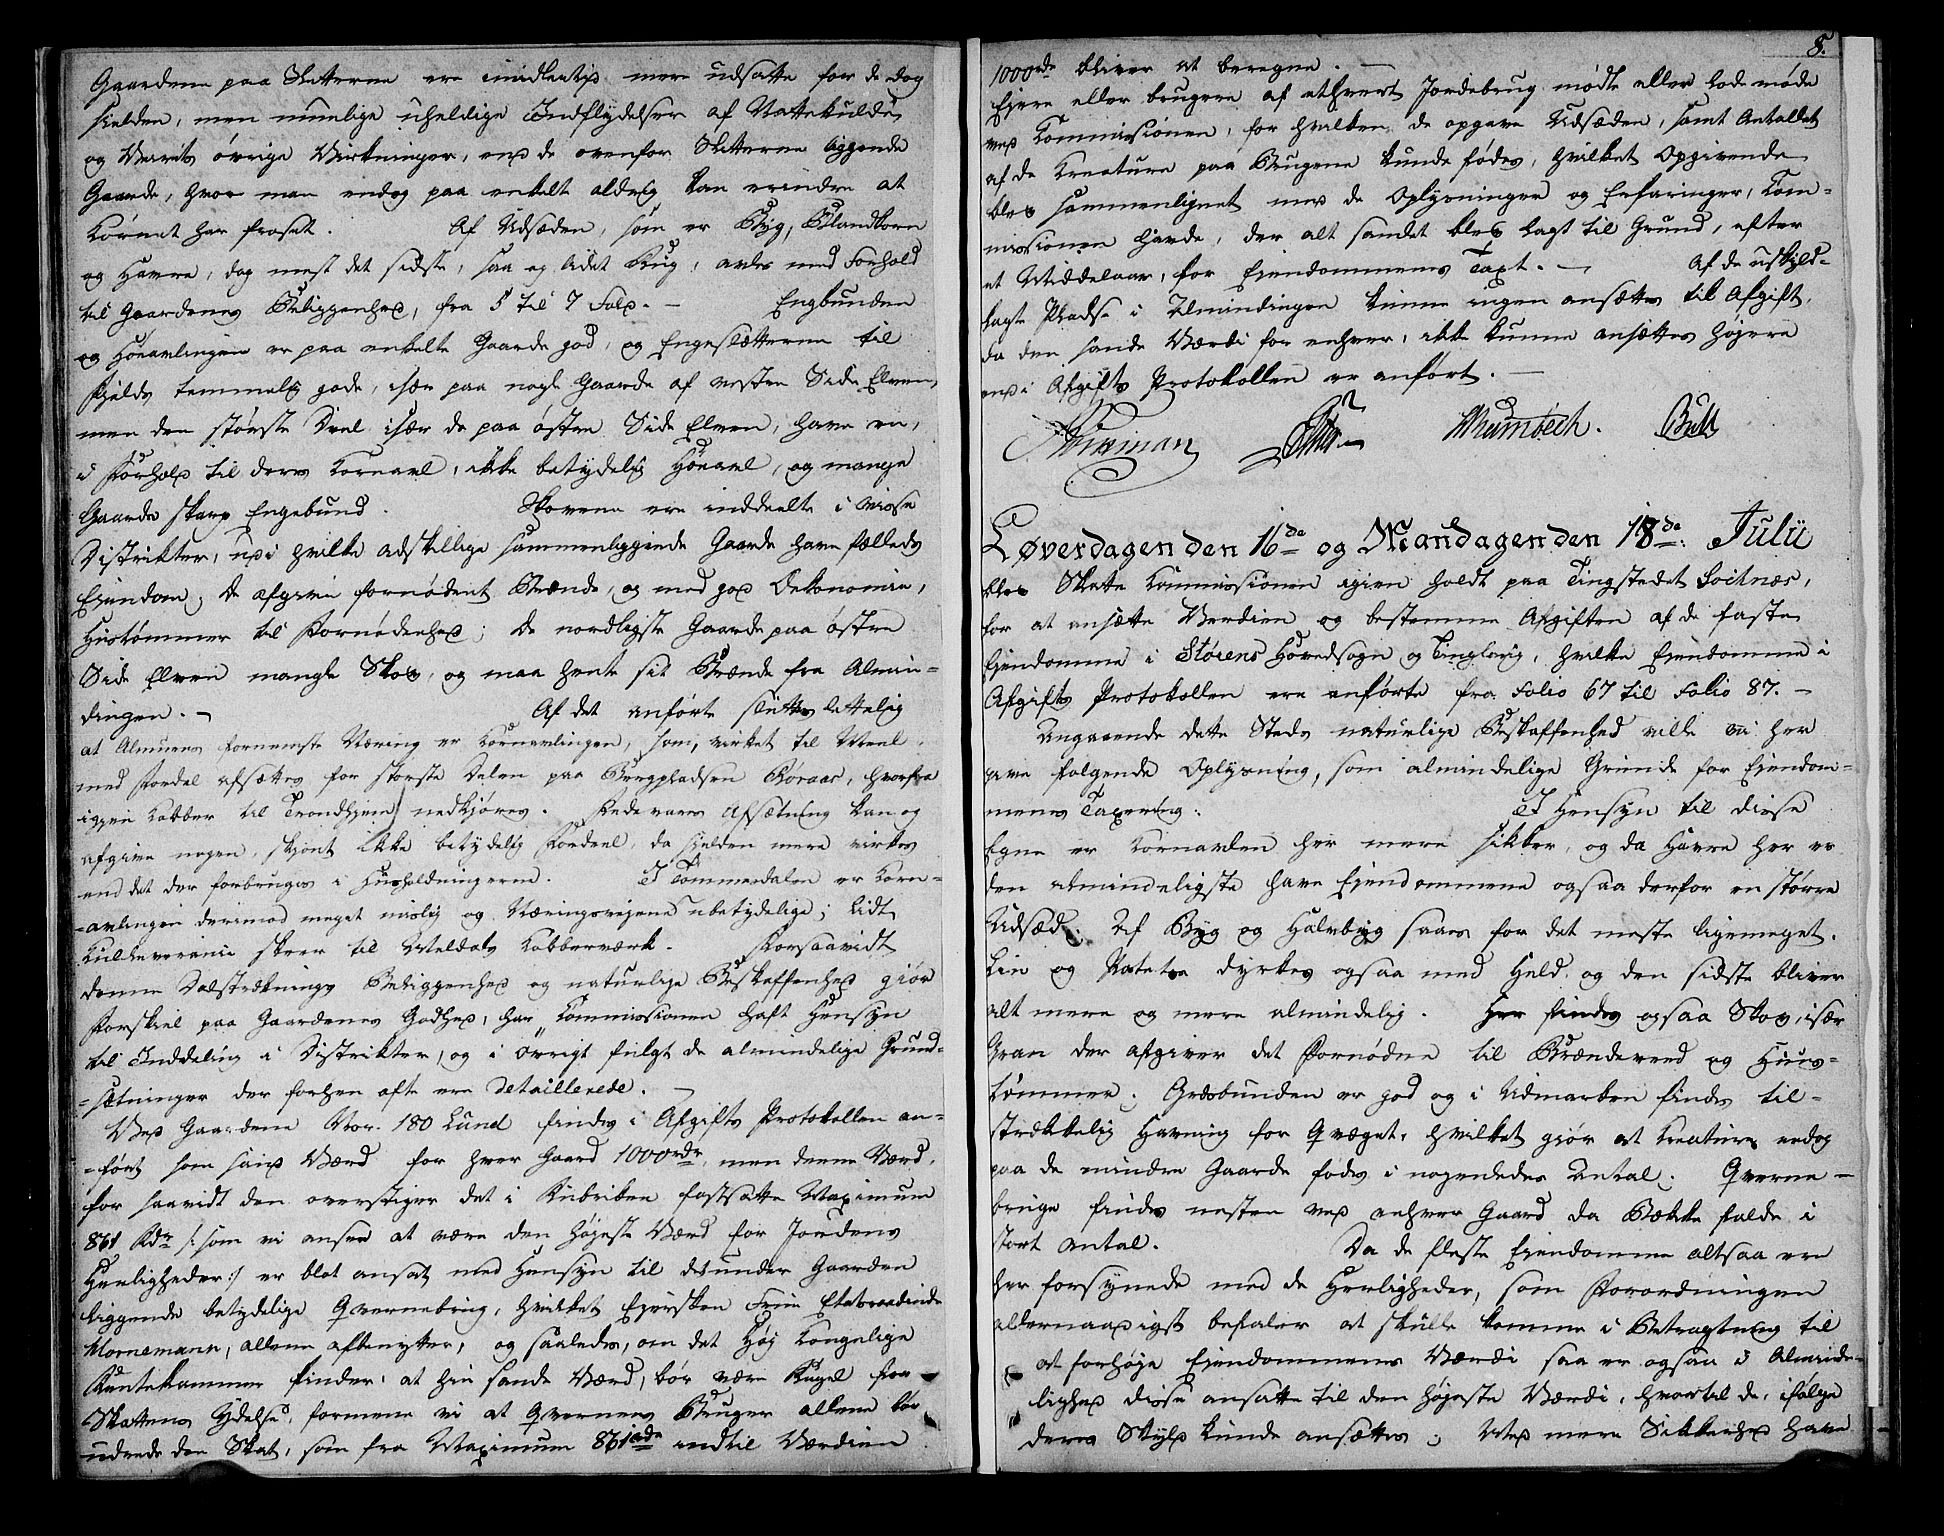 Gaardene paa Sletterne ere imidlertid mere udsatte for de dog
sielden, men muelige uheldige Indflydelser af Nattekulde
og Veirets øvrige Virkninger, end de ovenfor Sletterne liggende
Gaarde, hvor man endog paa enkelt aldrig kan erindre at
Kornet har froset. Af Udsæden, som er Byg, Blandkorn
og Havre, dog mest det sidste, saa og lidet Rug, avles med Forhold
til Gaardenes Beliggenhed, fra 5 til 7 Fold. — Engbunden
og Höeavlingen er paa enkelte Gaarde god, og Engesletterne til
Fields temmelig gode, især paa nogle Gaarde af vestre Side Elven,
men den største Deel især de paa østre Side Elven, have en,
i Forhold til deres Kornavl, ikke betydelig Höeavl, og mange
Gaarde skarp Engebund. Skovene ere inddeelte i visse
Distrikter, udi hvilke adskillige sammenliggende Gaarde have fælleds
Eiendom; de afgive fornødent Brænde, og med god Oekonomie,
Huustømmer til Fornødenhed; de nordligste Gaarde paa østre
Side Elven mangle Skov, og maa hente sit Brænde fra Almin-
dingen. — Af det anførte sluttes lettelig
at Almuens fornemste Næring er Kornavlingen, som, virket til Meel,
med Fordel afsættes for største Delen paa Bergpladsen Røraas, hvorfra
igjen Kobber til Trondhjem nedkjøres. Fedevarers Afsætning kan og
afgive nogen, skjønt ikke betydelig Fordeel, da sielden mere virkes
end det der forbruges i Huusholdningerne. I Tømmesdalen er Korn-
-avlingen derimod meget mislig og Næringsveiene ubetydelige; lidt
Kulleveranse skeer til Meldals Kobberværk. Forsaavidt
denne Dalstreknings Beliggenhed og naturlige Beskaffenhed giør
Forskiel paa Gaardenes Godhed, har Commissionen haft Hensyn
til Inddeling i Distrikter, og i øvrigt fulgt de almindelige Grund-
-sætninger der forhen ofte ere detaillerede. —
Ved Gaardene Nor. 180 Lund findes i Afgifts Protokollen an-
-ført som sand Værd for hver Gaard 1000rdr, men denne Værd,
for saavidt den overstiger det i Rubriken fastsatte Maximum
861 Rdr /: som vi anser at være den højeste Værd for Jordens
Herligheder:/ er blot ansat med Hensyn til det under Gaarden
liggende betydelige Qvernebrug, hvilket Ejersken Frue Etatsraadinde
Hornemann, allene aftenytter, og saaledes, om det Høj Kongelige
Rentekammer finder, at hin sande Værd, bør være Regel for
Skattens Ydelse, formene vi at Qvernens Bruger allene bør
udrede den Skat, som fra Maximum 861rdr indtil Værdien
8.
1000rdr bliver at beregne. —
Ejere eller brugere af ethvert Jordebrug mødte eller lode møde
ved Commissionen, for hvilken de opgave Udsæden, samt Antallet
af de Kreature paa Brugene kunde fødes, hvilket Opgivende
blev sammenlignet med de Oplysninger og Erfaringer, Com-
missionen havde, der alt samlet blev lagt til Grund, efter
et Middelaar, for Ejendommens Taxt. — Af de uskyld-
lagte Pladse i Almindingen kunne ingen ansættes til Afgift,
da den sande Værdi for enhver, ikke kunne ansættes højere
end i Afgifts Protokollen er anført. —
Krumbech. Bull
Løverdagen den 16de og Mandagen den 18de Julii
blev Skatte Commissionen igien holdt paa Tingstedet Soknæs,
for at ansætte Verdien og bestemme Afgiften af de faste
Ejendomme i Størens Hovedsogn og Tinglaug, hvilke Ejendomme i
Afgifts Protokollen ere anførte fra Folio 67 til Folio 87. —
Angaaende dette Steds naturlige Beskaffenhed ville vi her
give følgende Oplysning, som almindelige Grunde for Ejendom-
mens Taxering. I Hensyn til disse
Egne er Kornavlen her mere sikker, og da Havre her er
den almindeligste have Ejendommene ogsaa derfor en større
Udsæd. Af Byg og Halvbyg saaes for det meste ligemeget.
Lin og Potetes dyrkes ogsaa med Held og den sidste bliver
alt mere og mere almindelig. Her findes ogsaa Skov, især
Gran der afgiver det Fornødne til Brændeved og Huus-
tømmer. Grdsbunden er god og i Udmarken findes til-
strækkelig Havning for Qvæget, hvilket giør at Kreature endog
paa de mindre Gaarde fødes i nogenledes Antal. Qverne-
bruge findes næsten ved enhver Gaard da Bække falde i
stort Antal. Da de fleste Ejendomme altsaa ere
her forsynede med de Herligheder, som Forordningen
allernaadigst befaler at skulle komme i Betragtning til
at forhøje Ejendommens Værdi saa er ogsaa i Alminde-
lighed disse ansatte til den højeste Værdi, hvortil de, ifølge
deres Skyld kunde ansættes; Med mere Sikkerhed have